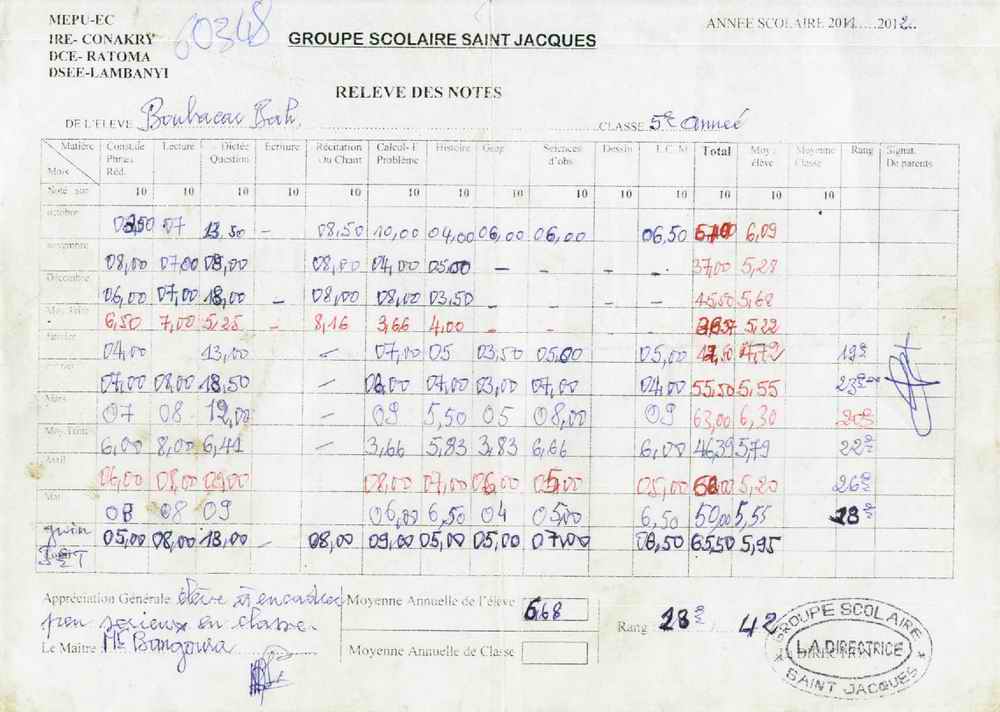 MEPU-EC
IRE- CONAKRY
DCE- RATOMA
DSEE-LAMBANYI
60348
GROUPE SCOLAIRE SAINT JACQUES
ANNEE SCOLAIRE 2011.....2012...
RELEVE DES NOTES
DE L'ELEVE Boubacar Bah CLASSE 5e Année
Matière Mois Const.de Phrases Réd. Lecture Dictée Question Ecriture Récitation Ou Chant Calcul- E Problème Histoire Géog Sciences d'obs Dessin E.C.M Total Moy élève Moyenne Classe Rang Signat. De parents
Noté sur 10 10 10 10 10 10 10 10 10 10 10 10 10 10
octobre 07 13,50 - 08,50 10,00 04,00 06,00 06,00 06,50 6,09
novembre 08,00 07,00 09,00 08,00 04,00 05,00 - - - - 37,00 5,28
Décembre 06,00 07,00 18,00 - 08,00 08,00 03,50 - - - - 45,50 5,68
Moy. Trim 6,50 7,00 5,25 - 8,16 3,66 4,00 - - 5,22
Janvier 04,00 13,00 - 07,00 05 03,50 05,00 05,00 4,72 19e
07,00 08,00 18,50 - 04,00 03,00 07,00 04,00 55,50 5,55 23e
Mars 07 08 12,00 - 09 5,50 05 08,00 09 63,00 6,30 20e
Moy. Trim 6,00 8,00 6,41 - 3,66 5,83 3,83 6,66 6,00 46,39 5,79 22e
Avril 06,00 08,00 09,00 08,00 07,00 06,00 05,00 05,00 5,20 26e
Mai 08 08 09 06,00 6,50 04 05,00 6,50 50,00 5,55 28e
juin 05,00 08,00 18,00 - 08,00 09,00 05,00 05,00 07,00 08,50 65,50 5,95
Appréciation Générale élève à encadrer Moyenne Annuelle de l'élève 5,68
peu serieux en classe. Rang 28e / 42
Le Maître Mr Bangoura Moyenne Annuelle de Classe
GROUPE SCOLAIRE
LA DIRECTRICE
SAINT JACQUES